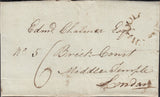 Edmd Chalmer Esqr
No 5 Brick Court
Middle Temple
London